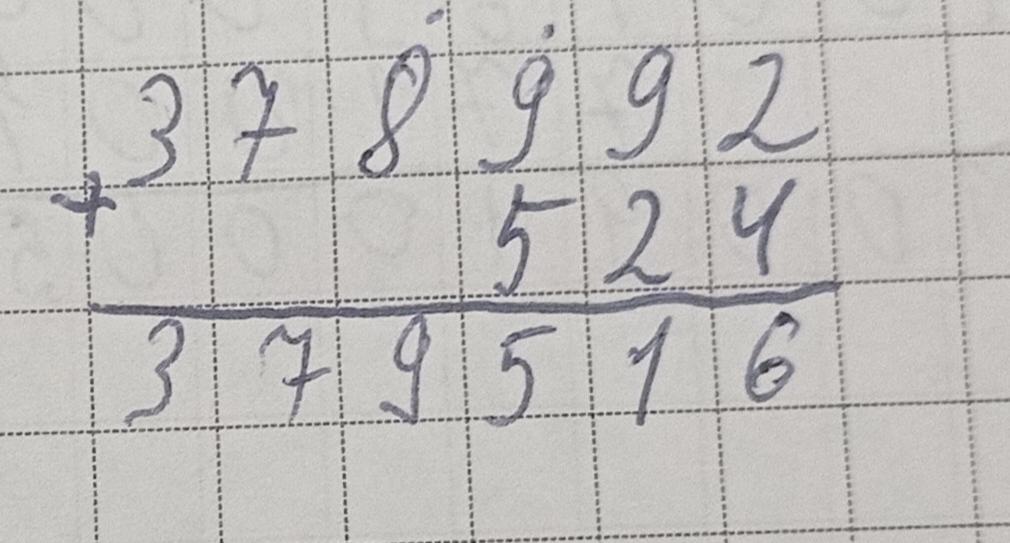 378992
+ 524
379516